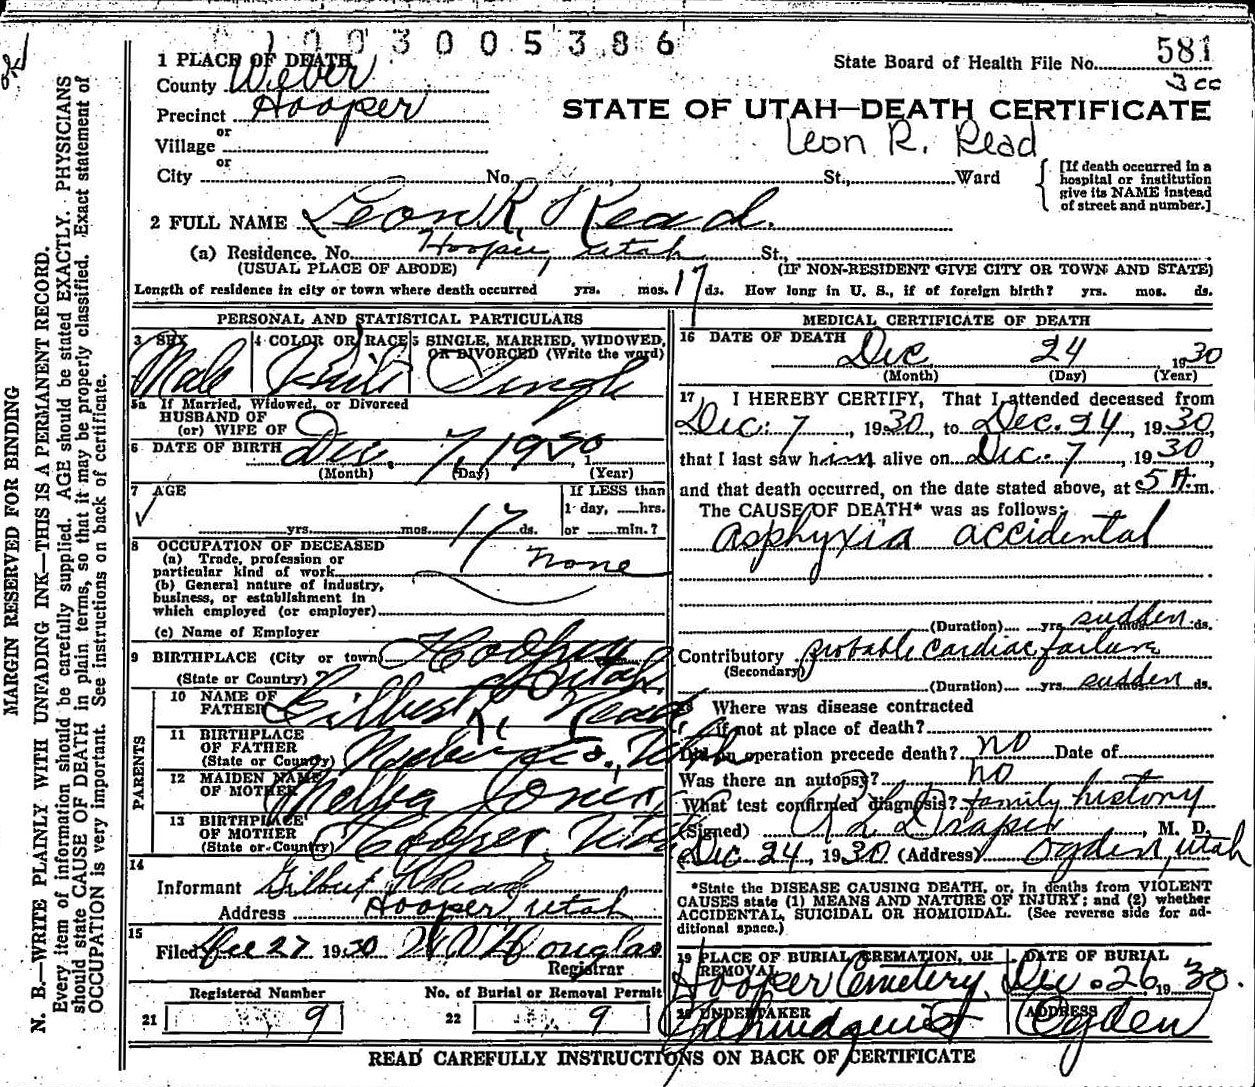 1003005386
1 PLACE OF DEATH
State Board of Health File No. 581
3 cc
County Weber
Precinct Hooper
STATE OF UTAH—DEATH CERTIFICATE
Leon R. Read
or
Village
or
City No. St., Ward
[If death occurred in a hospital or institution give its NAME instead of street and number.]
2 FULL NAME Leon R. Read.
(a) Residence. No. Hooper, Utah St.,
(USUAL PLACE OF ABODE) (IF NON-RESIDENT GIVE CITY OR TOWN AND STATE)
Length of residence in city or town where death occurred yrs. mos. 17 ds. How long in U. S., if of foreign birth? yrs. mos. ds.
PERSONAL AND STATISTICAL PARTICULARS
3 SEX Male
4 COLOR OR RACE White
5 SINGLE, MARRIED, WIDOWED, OR DIVORCED (Write the word) Single
5a If Married, Widowed, or Divorced
HUSBAND OF
(or) WIFE OF
6 DATE OF BIRTH Dec. 7, 1930, 1
(Month) (Day) (Year)
7 AGE
If LESS than
1 day, hrs.
yrs. mos. 17 ds. or min.?
8 OCCUPATION OF DECEASED
(a) Trade, profession or
particular kind of work none
(b) General nature of industry,
business, or establishment in
which employed (or employer)
(c) Name of Employer
9 BIRTHPLACE (City or town) Hooper
(State or Country) Utah
PARENTS
10 NAME OF FATHER Gilbert R. Read
11 BIRTHPLACE OF FATHER (State or Country) Weber Co., Utah
12 MAIDEN NAME OF MOTHER Melba Jones
13 BIRTHPLACE OF MOTHER (State or Country) Hooper, Utah
14
Informant Gilbert R Read
Address Hooper, Utah
15
Filed Dec 27 1930
Registrar
Registered Number
21 9
No. of Burial or Removal Permit
22 9
MEDICAL CERTIFICATE OF DEATH
16 DATE OF DEATH
Dec 24 1930
(Month) (Day) (Year)
17 I HEREBY CERTIFY, That I attended deceased from
Dec. 7, 1930, to Dec. 24, 1930,
that I last saw him alive on Dec. 7 1930,
and that death occurred, on the date stated above, at 5 A.m.
The CAUSE OF DEATH* was as follows:
asphyxia accidental
(Duration) yrs. sudden mos. ds.
Contributory probable cardiac failure
(Secondary)
(Duration) yrs. sudden ds.
Where was disease contracted
if not at place of death?
Did an operation precede death? no Date of
Was there an autopsy? no
What test confirmed diagnosis? family history
(Signed) Draper, M. D.
Dec 24, 1930 (Address) Ogden, Utah
*State the DISEASE CAUSING DEATH, or, in deaths from VIOLENT
CAUSES state (1) MEANS AND NATURE OF INJURY; and (2) whether
ACCIDENTAL, SUICIDAL OR HOMICIDAL. (See reverse side for ad-
ditional space.)
19 PLACE OF BURIAL, CREMATION, OR REMOVAL
Hooper Cemetery,
DATE OF BURIAL
Dec. 26, 1930.
20 UNDERTAKER
ADDRESS
Ogden
READ CAREFULLY INSTRUCTIONS ON BACK OF CERTIFICATE
MARGIN RESERVED FOR BINDING
N. B.—WRITE PLAINLY WITH UNFADING INK—THIS IS A PERMANENT RECORD.
Every item of information should be carefully supplied. AGE should be stated EXACTLY. PHYSICIANS
should state CAUSE OF DEATH in plain terms, so that it may be properly classified. Exact statement of
OCCUPATION is very important. See instructions on back of certificate.